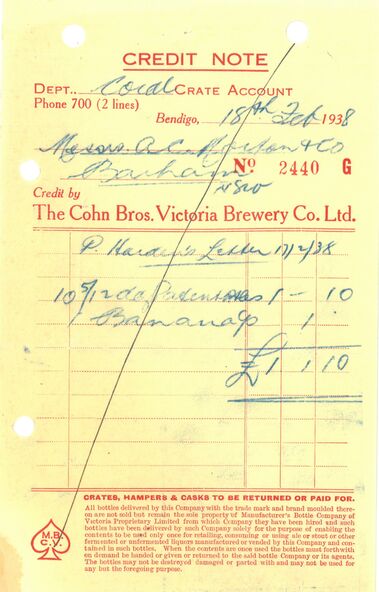 CREDIT NOTE
DEPT.. Cord CRATE ACCOUNT
Phone 700 (2 lines)
Bendigo, 18th Feb 1938
Messrs A.C. & Co
Barham
No 2440 G
NSW
Credit by
The Cohn Bros. Victoria Brewery Co. Ltd.
P. Harden's Letter 17/2/38
10 5/12 1 - 10
1 1
£1 1 10
CRATES, HAMPERS & CASKS TO BE RETURNED OR PAID FOR.
All bottles delivered by this Company with the trade mark and brand moulded there-
on are not sold but remain the sole property of Manufacturer's Bottle Company of
Victoria Proprietary Limited from which Company they have been hired and such
bottles have been delivered by such Company solely for the purpose of enabling the
contents to be used only once for retailing, consuming or using ale or stout or other
fermented or unfermented liquors manufactured or vended by this Company and con-
tained in such bottles. When the contents are once used the bottles must forthwith
on demand be handed or given or returned to the said bottle Company or its agents.
The bottles may not be destroyed damaged or parted with and may not be used for
any but the foregoing purpose.
M.B.
C.V.